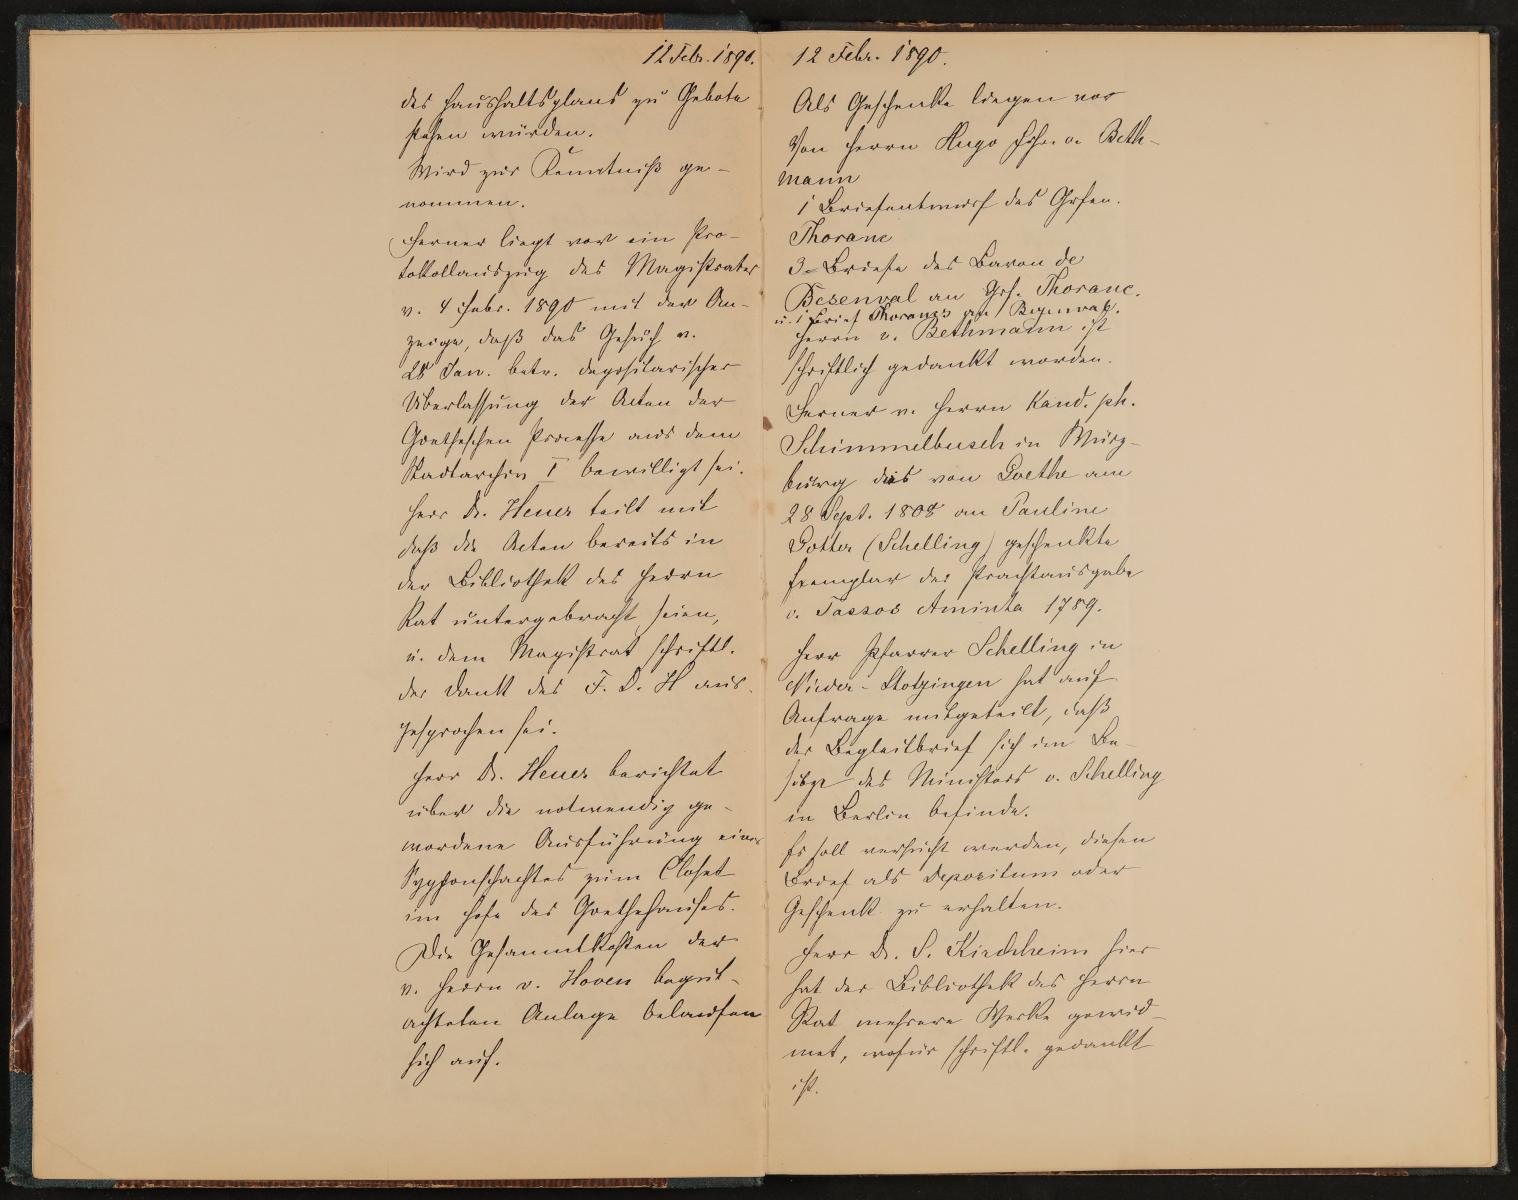 12 Febr. 1890.
des Haushaltsplans zu Gebote
stehen würden.
Wird zur Kenntniß ge-
nommen.
Ferner liegt vor ein Pro-
tokollauszug des Magistrates
v. 4 Febr. 1890 mit der An-
zeige, daß das Gesuch v.
28 Jan. betr. depositarischer
Überlassung der Acten der
Goetheschen Processe aus dem
Stadtarchiv I bewilligt sei.
Herr Dr. Heuer teilt mit
daß die Acten bereits in
der Bibliothek des Herrn
Rat untergebracht seien,
u. dem Magistrat schriftl.
der Dank des F. D. H aus-
gesprochen sei.
Herr Dr. Heuer berichtet
über die notwendig ge-
wordene Ausführung eines
Syphonschachtes zum Closet
im Hofe des Goethehauses.
Die Gesammtkosten der
v. Herrn v. Hoven begut-
achteten Anlage belaufen
sich auf.
12 Febr. 1890.
Als Geschenke liegen vor
Von Herrn Hugo Frhr. v. Beth-
mann
1 Briefentwurf des Grfen.
Thoranc
3 Briefe des Baron de
Besenval an Grf. Thoranc.
u. 1 Brief Thorancs an Besenval.
Herrn v. Bethmann ist
schriftlich gedankt worden.
Ferner v. Herrn Kand. ph.
Schimmelbusch in Würz-
burg das von Goethe am
28 Sept. 1808 an Pauline
Gotter (Schelling) geschenkte
Exemplar der Prachtausgabe
v. Tassos Aminta 1789.
Herr Pfarrer Schelling in
Nieder-Stotzingen hat auf
Anfrage mitgeteilt, daß
der Begleitbrief sich im Be-
sitze des Ministers v. Schelling
in Berlin befinde.
Es soll versucht werden, diesen
Brief als Depositum oder
Geschenk zu erhalten.
Herr Dr. S. Kirchheim hier
hat der Bibliothek des Herrn
Rat mehrere Werke gewid-
met, wofür schriftl. gedankt
ist.